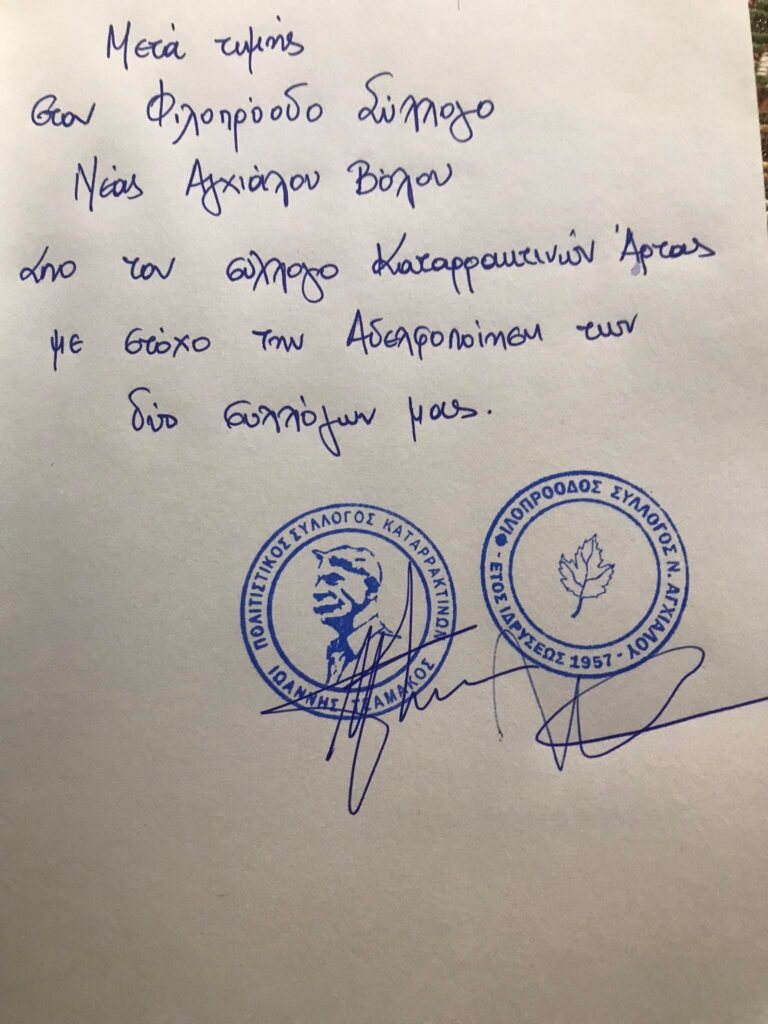 Μετά τιμής
στον Φιλοπρόοδο Σύλλογο
Νέας Αγχιάλου Βόλου
Από τον σύλλογο Καταρρακτινών Άρτας
με στόχο την Αδελφοποίηση των
δύο συλλόγων μας.
ΠΟΛΙΤΙΣΤΙΚΟΣ ΣΥΛΛΟΓΟΣ ΚΑΤΑΡΡΑΚΤΙΝΩΝ
ΙΩΑΝΝΗΣ ΤΣΑΜΑΚΟΣ
ΦΙΛΟΠΡΟΟΔΟΣ ΣΥΛΛΟΓΟΣ Ν. ΑΓΧΙΑΛΟΥ
- ΕΤΟΣ ΙΔΡΥΣΕΩΣ 1957 -